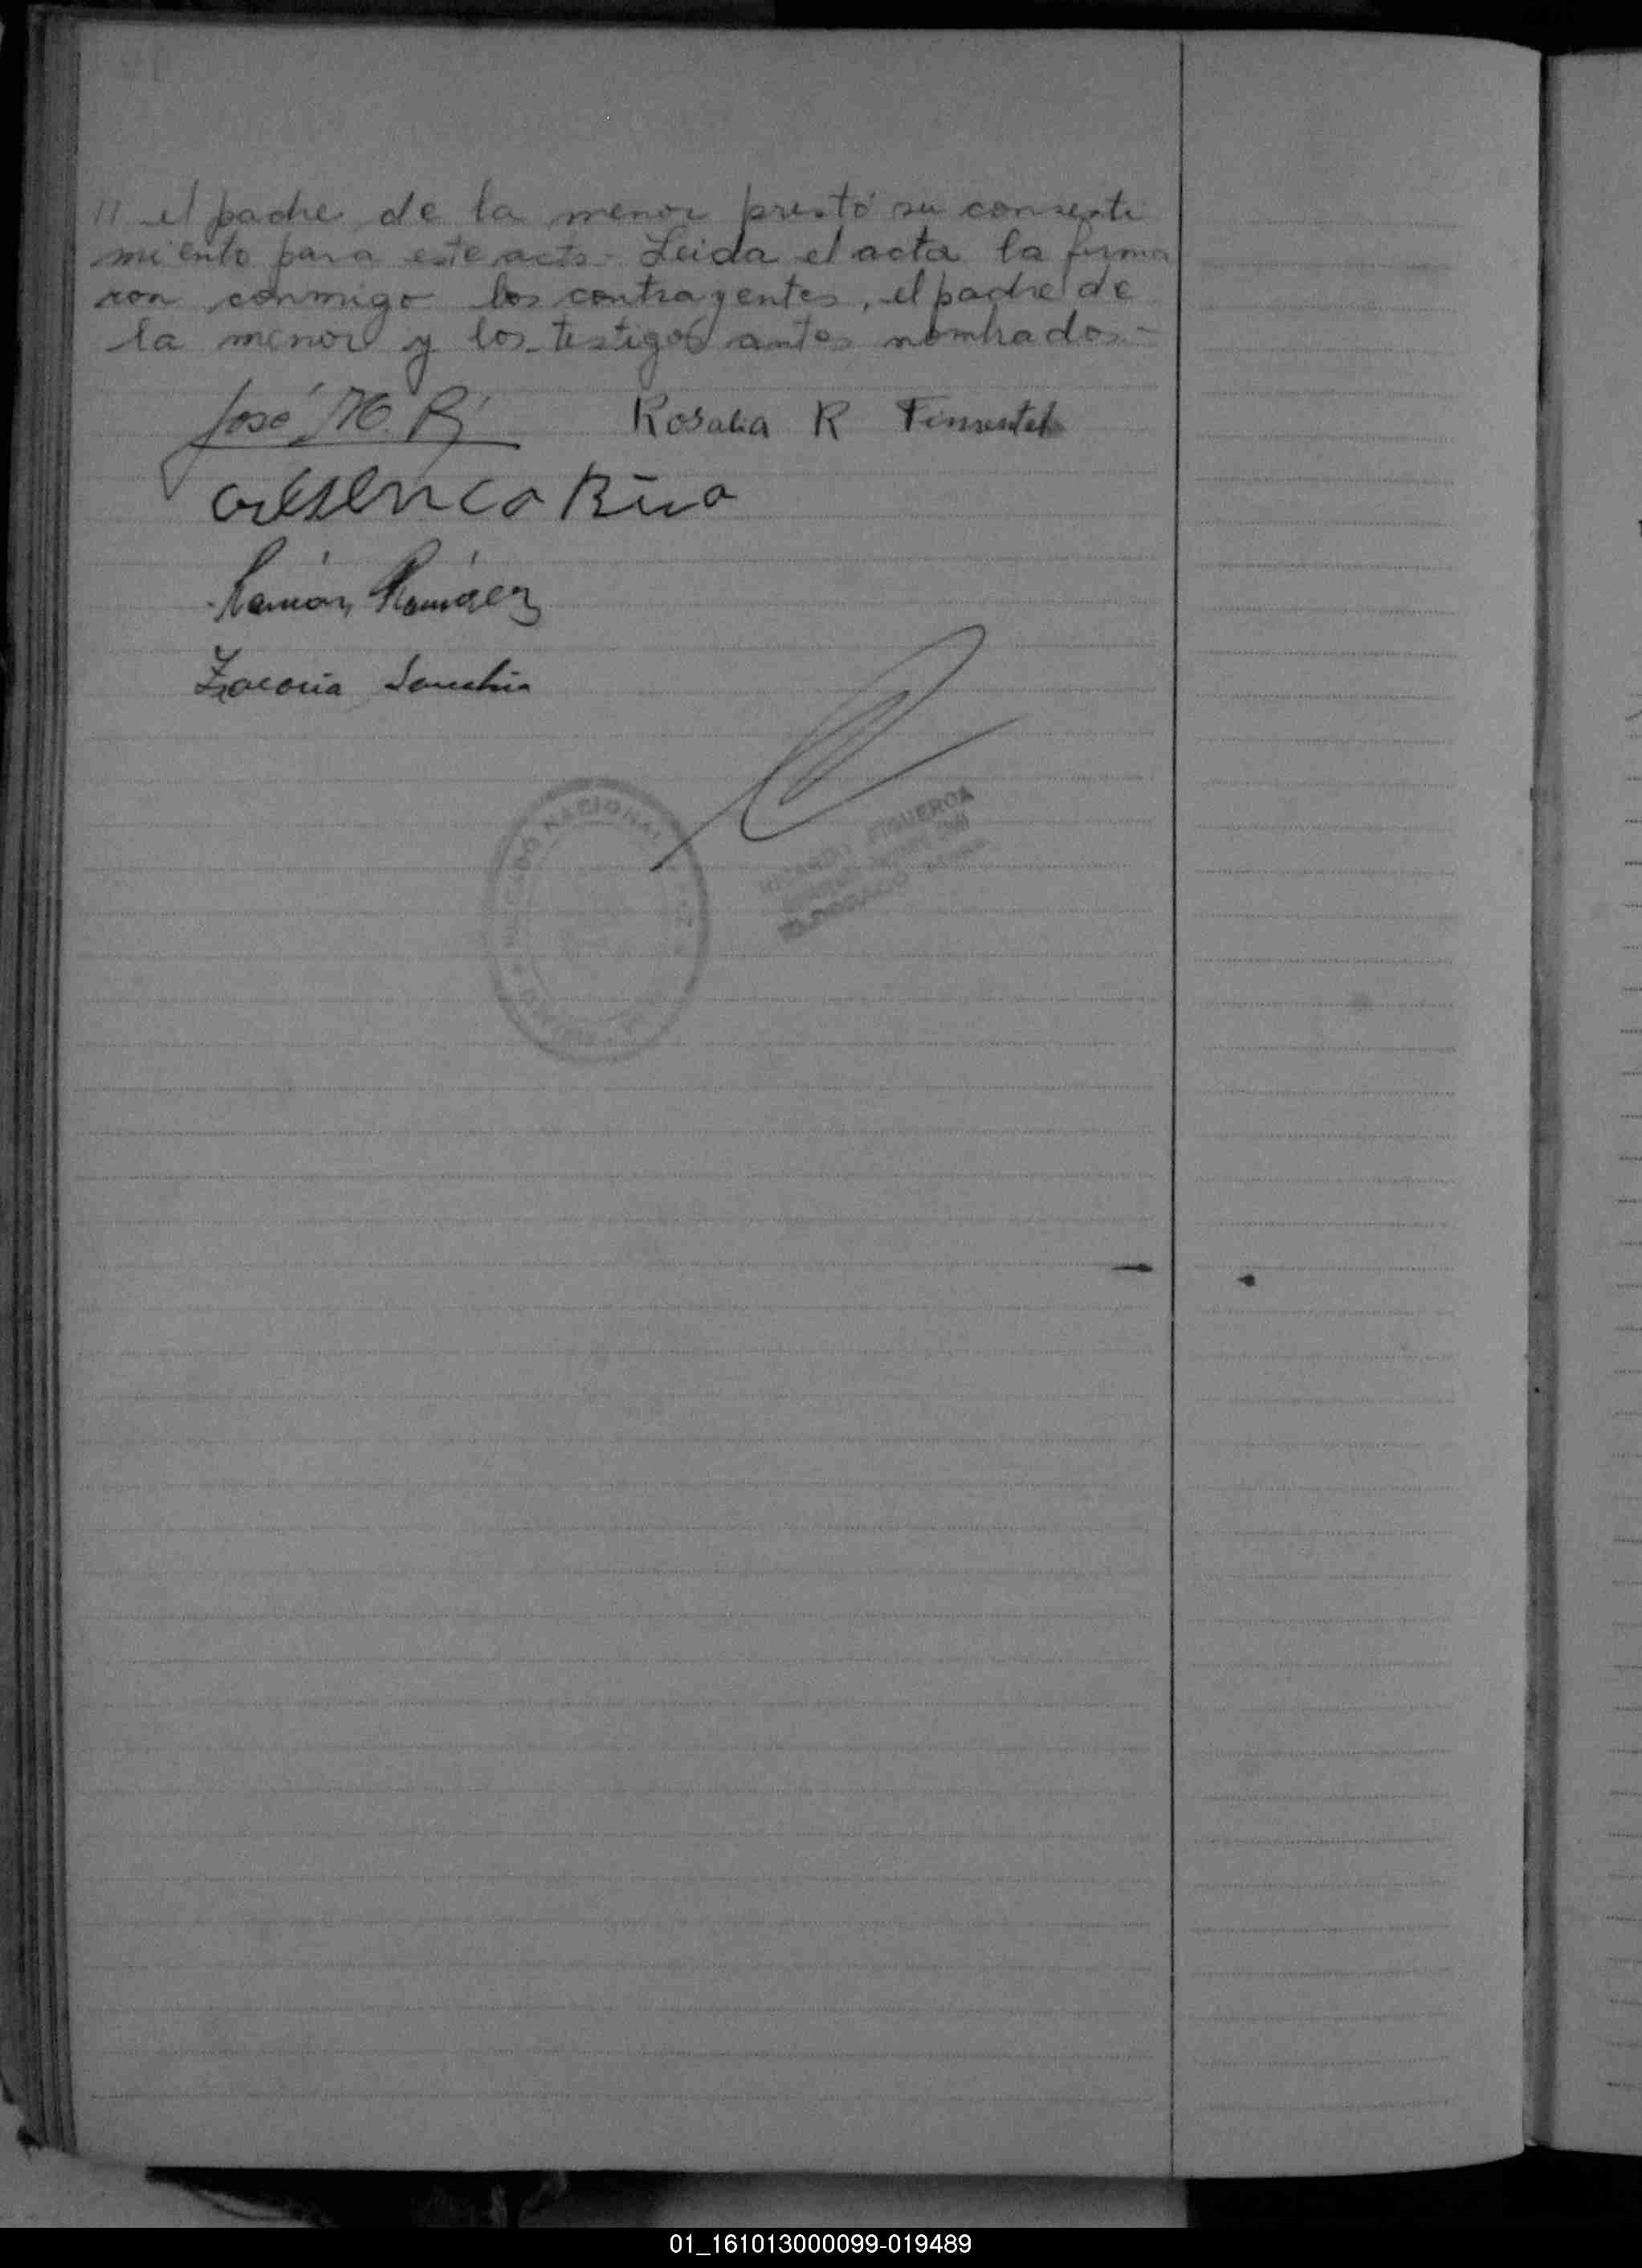 11 el padre de la menor prestó su consenti
miento para este acto - Leida el acta la firma
ron conmigo los contrayentes, el padre de
la menor y los testigos antes nombrados.-
José
Rosalia R Pimentel
Ramón Ramírez
Zacaria
NACIONAL
FIGUEROA
01_161013000099-019489